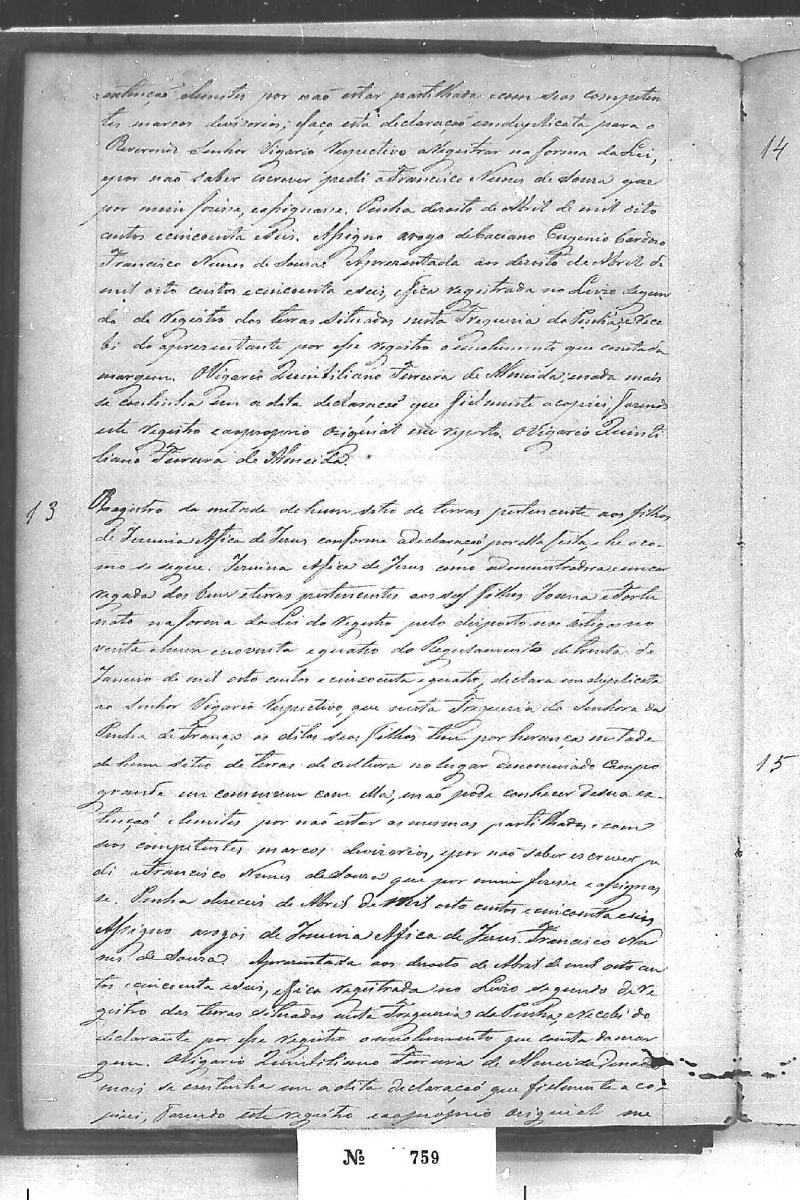 extençaõ e limites por naõ estar partilhada e com seos competen
tes marcos devizorios; faço esta declaraçaõ em duplicata para o
Reverendo Senhor Vigario respectivo a registrar na forma da Lei,
e por naõ saber escrever pedi a Francisco Nunes de Souza que
por mim fizesse, e assignasse. Penha dezoito de Abril de mil oito
centos e cincoenta e seis. Assigno a rogo de Caciano Eugenio Cardozo
Francisco Nunes de Souza. Apresentada aos dezoito de Abril de
mil oito centos e cincoenta e seis, e fica registrada no Livro segun
do de registro das terras situadas nesta Freguezia da Penha, e rece
bi do apresentante por esse registro o emolumento que consta da
margem. O Vigario Quintiliano Ferreira de Almeida, e nada mais
se continha em a dita declaraçaõ que fielmente a copiei, fazendo
este registro e ao proprio original me reporto. O Vigario Quinti
liano Ferreira de Almeida.
13
Registro da metade de hum sitio de terras pertencente aos filhos
de Jesus conforme a declaraçaõ por ella feita, e he o co
mo se segue. de Jesus como administradora e encar
regada dos bens e terras pertencentes aos seos filhos e Fortu
nato na forma da Lei do registro pelo disposto nos artigos no
venta e hum e noventa e quatro do Regulamento de trinta de
Janeiro de mil oito centos e cincoenta e quatro, declara em duplicata
ao Senhor Vigario respectivo, que nesta Freguezia da Senhora da
Penha de França os ditos seos filhos tem por herança metade
de hum sitio de terras de cultura no lugar denominado Campo
grande em commum com ella, e naõ pode conhecer de sua ex
tençaõ e limites por naõ estar as mesmas partilhadas e com
seos competentes marcos devizorios, e por naõ saber escrever pe
di a Francisco Nunes de Souza que por mim fizesse e assignas
se. Penha dezeseis de Abril de mil oito centos e cincoenta e seis
Assigno a rogo de de Jesus. Francisco Nu
nes de Souza. Apresentada aos dezoito de Abril de mil oito cen
tos e cincoenta e seis, e fica registrada no Livro segundo de re
gistro das terras situadas nesta Freguezia da Penha, e recebi do
declarante por esse registro o emolumento que consta da mar
gem. O Vigario Quintiliano Ferreira de Almeida, e nada
mais se continha em a dita declaraçaõ que fielmente a co
piei, fazendo este registro e ao proprio original me
14
15
Nº 759